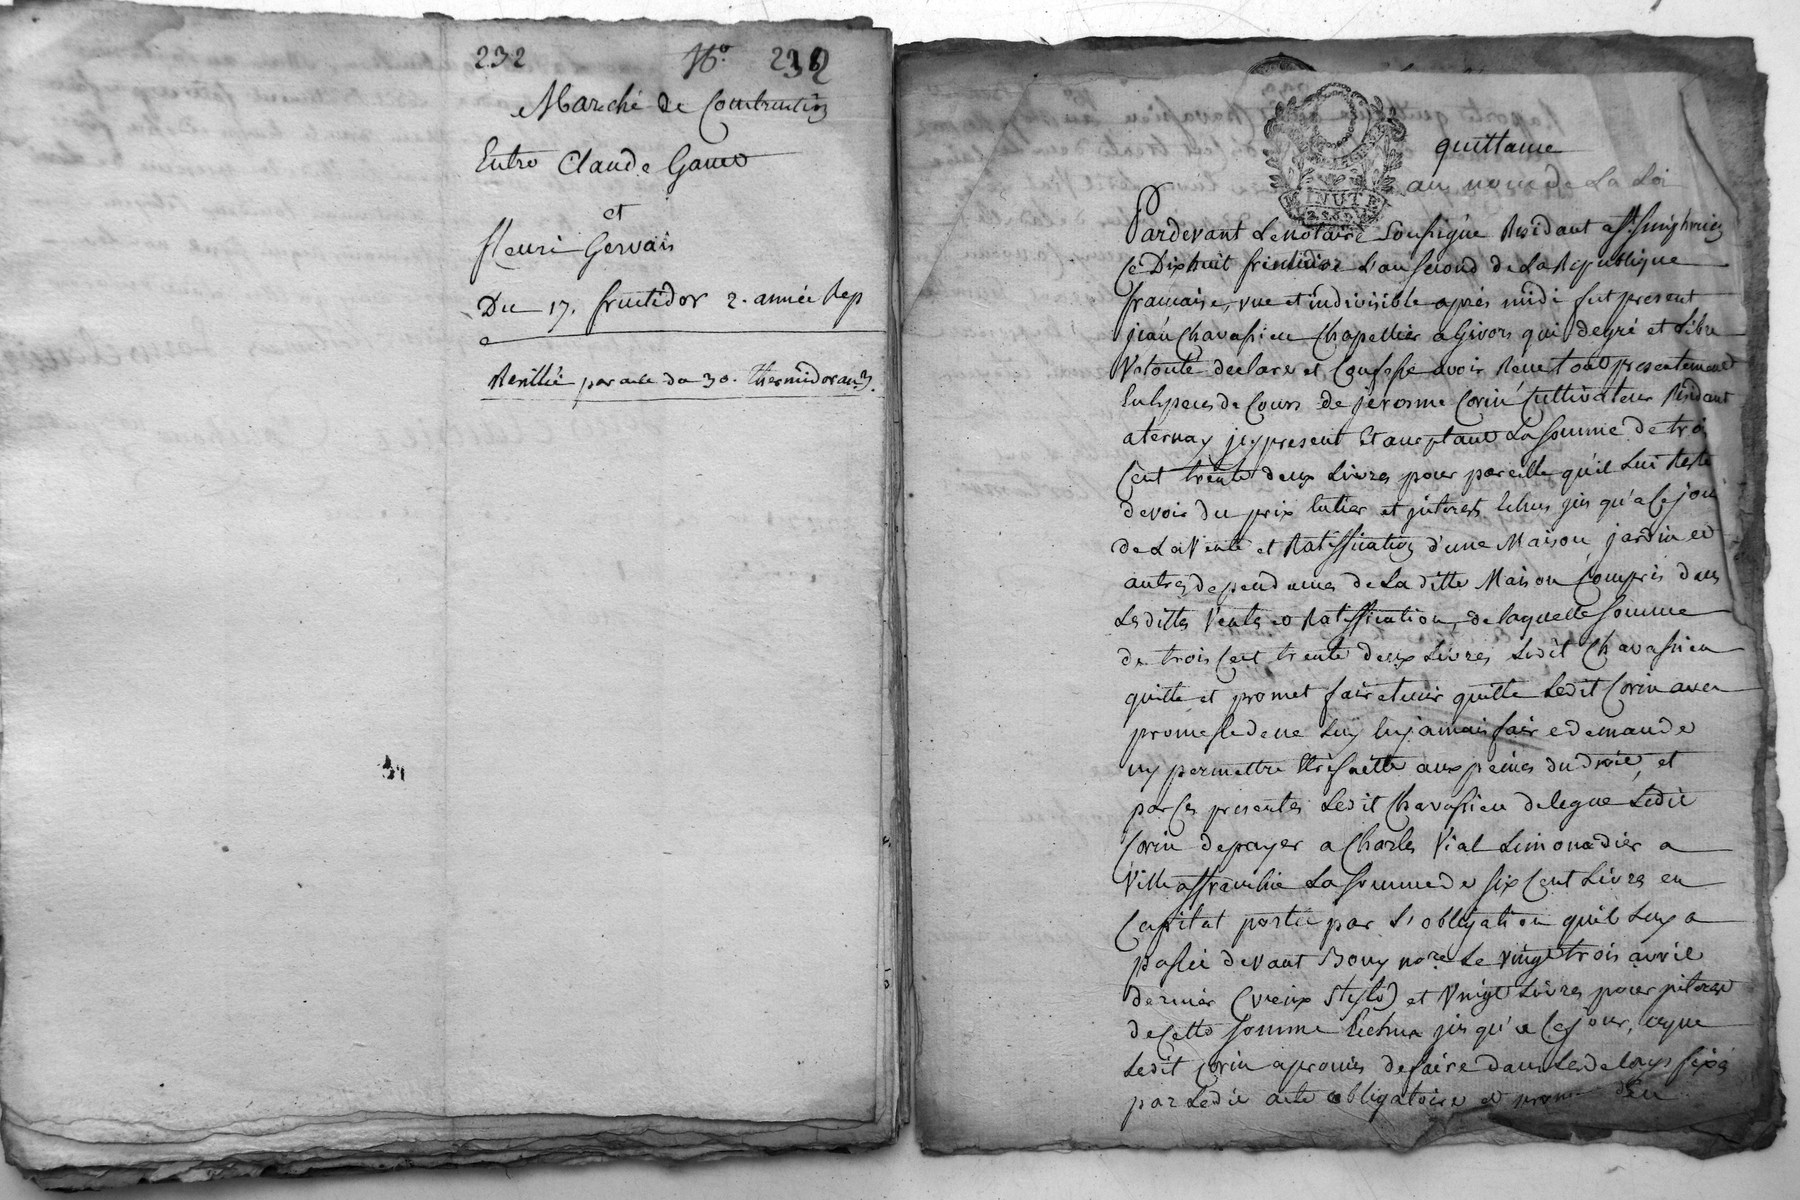 232 No. 232
Marché de Construction
Entre Claude Ganet
et
fleuri Gervais
Du 17. fructidor 2. année Rep
Resillié par acte du 30. thermidor an 3.
quittance
au nom de La Loi
MINUTE
Pardevant Le notaire Soussigné Residant a
Ce Dixhuit fructidor L'an second de La Republique
francaise, une et indivisible après midi fut present
jean Chavassieu Chapellier a Givors qui de gré et Libre
Volonté declare et Confesse avoir Recu tout presentement
En Especes de Cours de jerosme Corin Cultivateur Residant
a ternay jcy present Et acceptant La somme de trois
Cent trente deux Livres pour pareille qu'il Lui Reste
devoir du prix Entier et jnterets Echus jus qu'a Ce jour
de La Vente et Ratiffication d'une Maison, jardin et
autres dependences de La ditte Maison Compris dans
Les dittes Vente et Ratiffication, de laquelle somme
de trois Cent trente deux Livres Ledit Chavassieu
quitte et promet faire tenir quitte Ledit Corin avec
promesse de ne Luy En jamais faire demande
ny permettre Etre faitte aux peines du droit, et
par Ces presentes Ledit Chavassieu delegue Ledit
Corin de payer a Charles Vial Limonadier a
Ville affranchie La somme de six Cent Livres en
Capital portée par L'obligation quil Luy a
passée devant Bouy nore. Le Vingt trois avril
dernier (Vieux Style) et Vingt Livres pour jnteret
de Cette somme Echus jus qu'a Ce jour, ce que
Ledit Corin a promis de faire dans Les delays fixés
par Ledit acte obligatoire et d'En